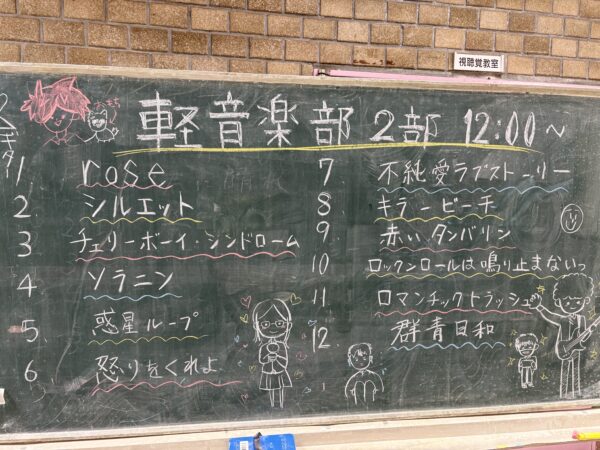 視聴覚教室
軽音楽部 2部 12:00〜
1 rose
2. シルエット
3 チェリーボーイ・シンドローム
4 ソラニン
5. 惑星ループ
6 怒りをくれよ
7 不純愛ラブストーリー
8. キラービーチ
9. 赤いタンバリン
10 ロックンロールは鳴り止まないっ
11. ロマンチックトラッシュ
12. 群青日和